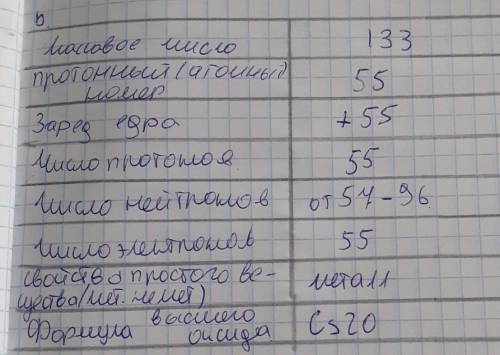 b
Массовое число 133
протонный (атомный)
номер 55
Заред едра +55
Число протонов 55
Число нейтронов от 57-96
Число электронов 55
свойства простого ве-
щества (мет. немет) металл
Формула высшего
оксида Cs2O